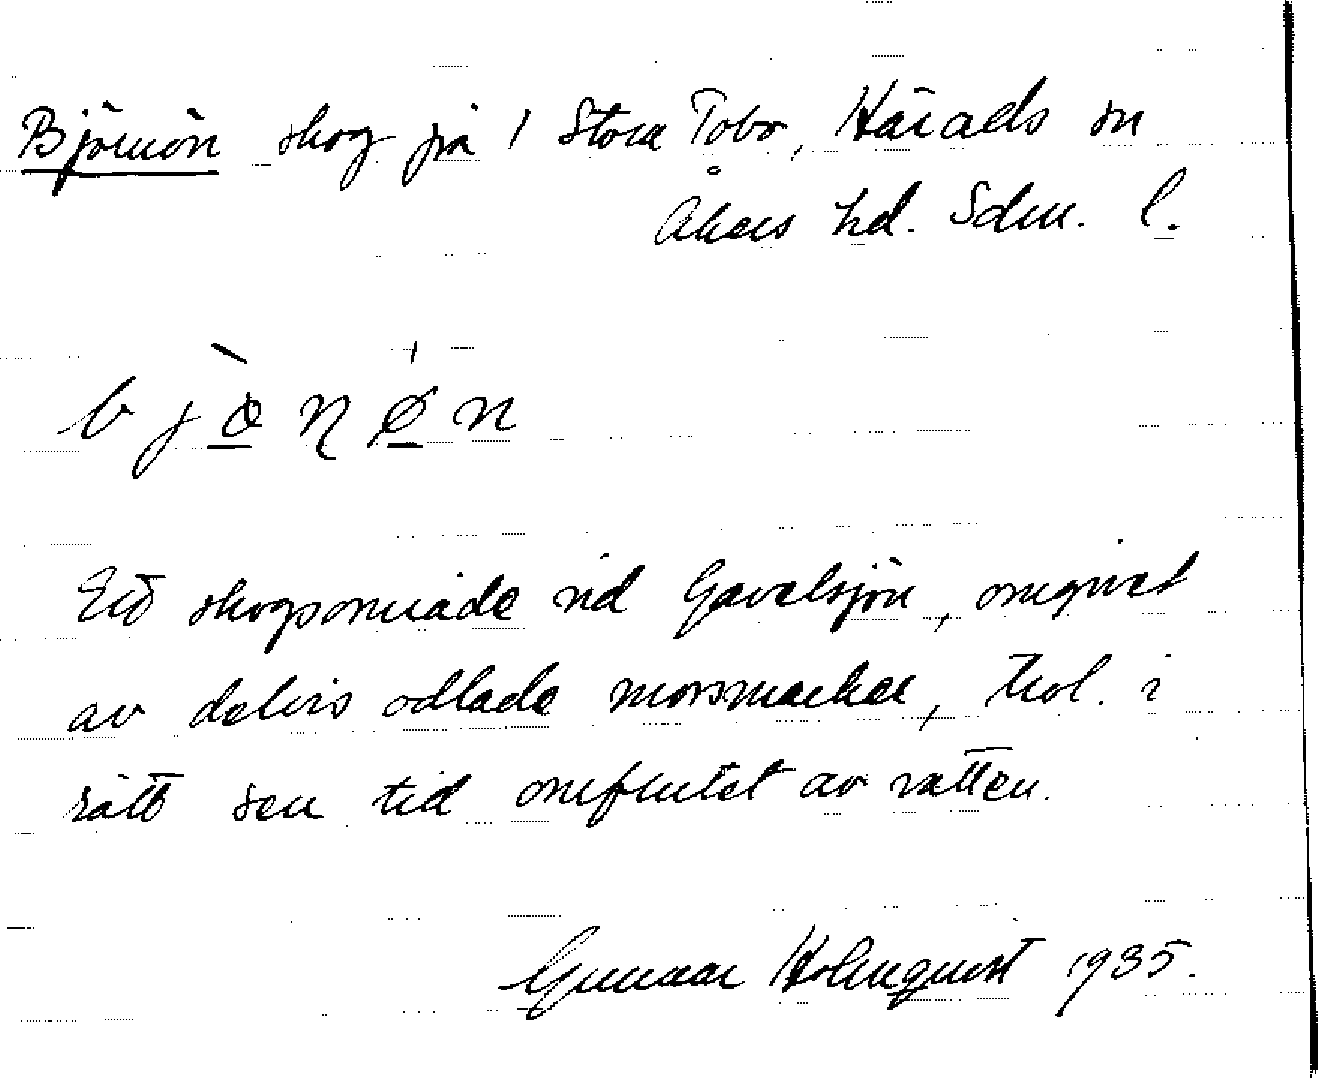 Björnön skog på 1 Stora Tobo, Härads sn
Åkers hd. Sdm. l.
b j ö̀ ɳ ǿ n
Ett skogsområde vid Gavelsjön, omgivet
av delvis odlade mossmarker, trol. i
rätt sen tid omflutet av vatten.
Gunnar Holmquist 1935.